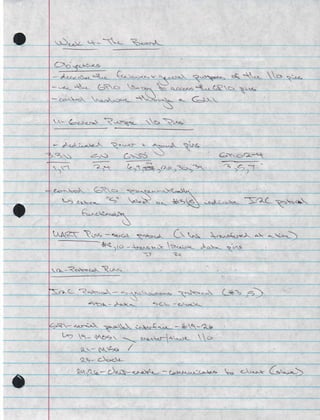 Week 4 - The Board
Objectives
- describe the features + general purpose of the I/O pins
- use the GPIO library to access the GPIO pins
- control hardware through a GUI
1.1 - General Purpose I/O Pins
- dedicated power + ground pins
3.3V 5V GND
1,17 2,4 3,5,7
- control GPIO programmatically
indicate I2C protocol
functionality
UART Pins - serial protocol (1 bit transferred at a time)
#8,10 - transmit/receive data pins
1.2 - Protocol Pins
I2C Protocol - synchronous protocol (#3,5)
SDA - data SCL - clock
SPI - serial parallel interface - #19-26
19 - MOSI master/slave I/O
21 - MISO
23 - clock
24/26 - chip-enable - communicates to client (slave)